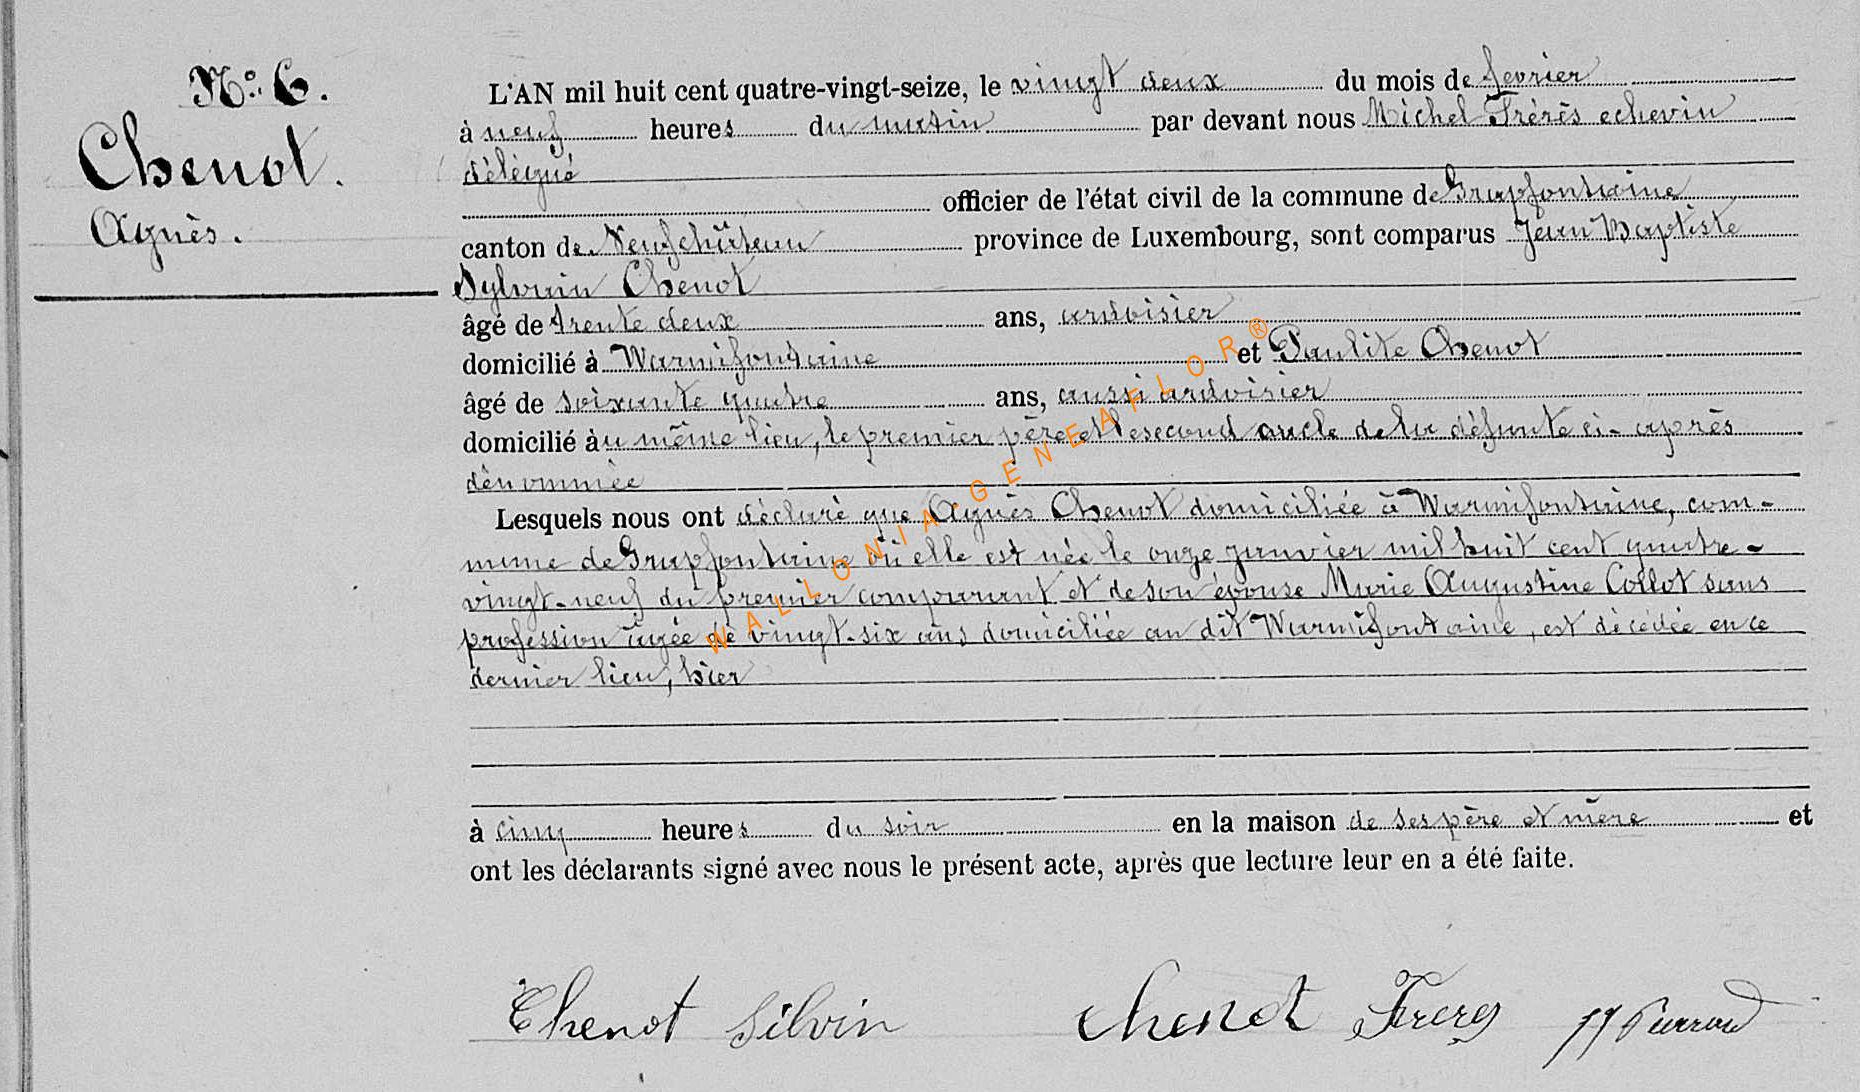 N.o 6.
Chenot.
Agnès.
L'AN mil huit cent quatre-vingt-seize, le vingt deux du mois de fevrier
à neuf heures du matin par devant nous Michel Frérès echevin
délégué
officier de l'état civil de la commune de Grapfontaine
canton de Neufchâteau province de Luxembourg, sont comparus Jean Baptiste
Sylvain Chenot
âgé de trente deux ans, ardoisier
domicilié à Warmifontaine et Paulite Chenot
âgé de soixante quatre ans, aussi ardoisier
domicilié au même lieu, le premier père et le second oncle de la défunte ci-après
dénommée
Lesquels nous ont déclaré que Agnès Chenot domiciliée à Warmifontaine, com-
mune de Grapfontaine où elle est née le onze janvier mil huit cent quatre-
vingt-neuf du premier comparant et de son épouse Marie Augustine Collot sans
profession âgée de vingt-six ans domiciliée au dit Warmifontaine, est décédée en ce
dernier lieu, hier
à cinq heures du soir en la maison de ses père et mère et
ont les déclarants signé avec nous le présent acte, après que lecture leur en a été faite.
Chenot Silvin chenot Frerès
WALLONIA GENEAFLOR®